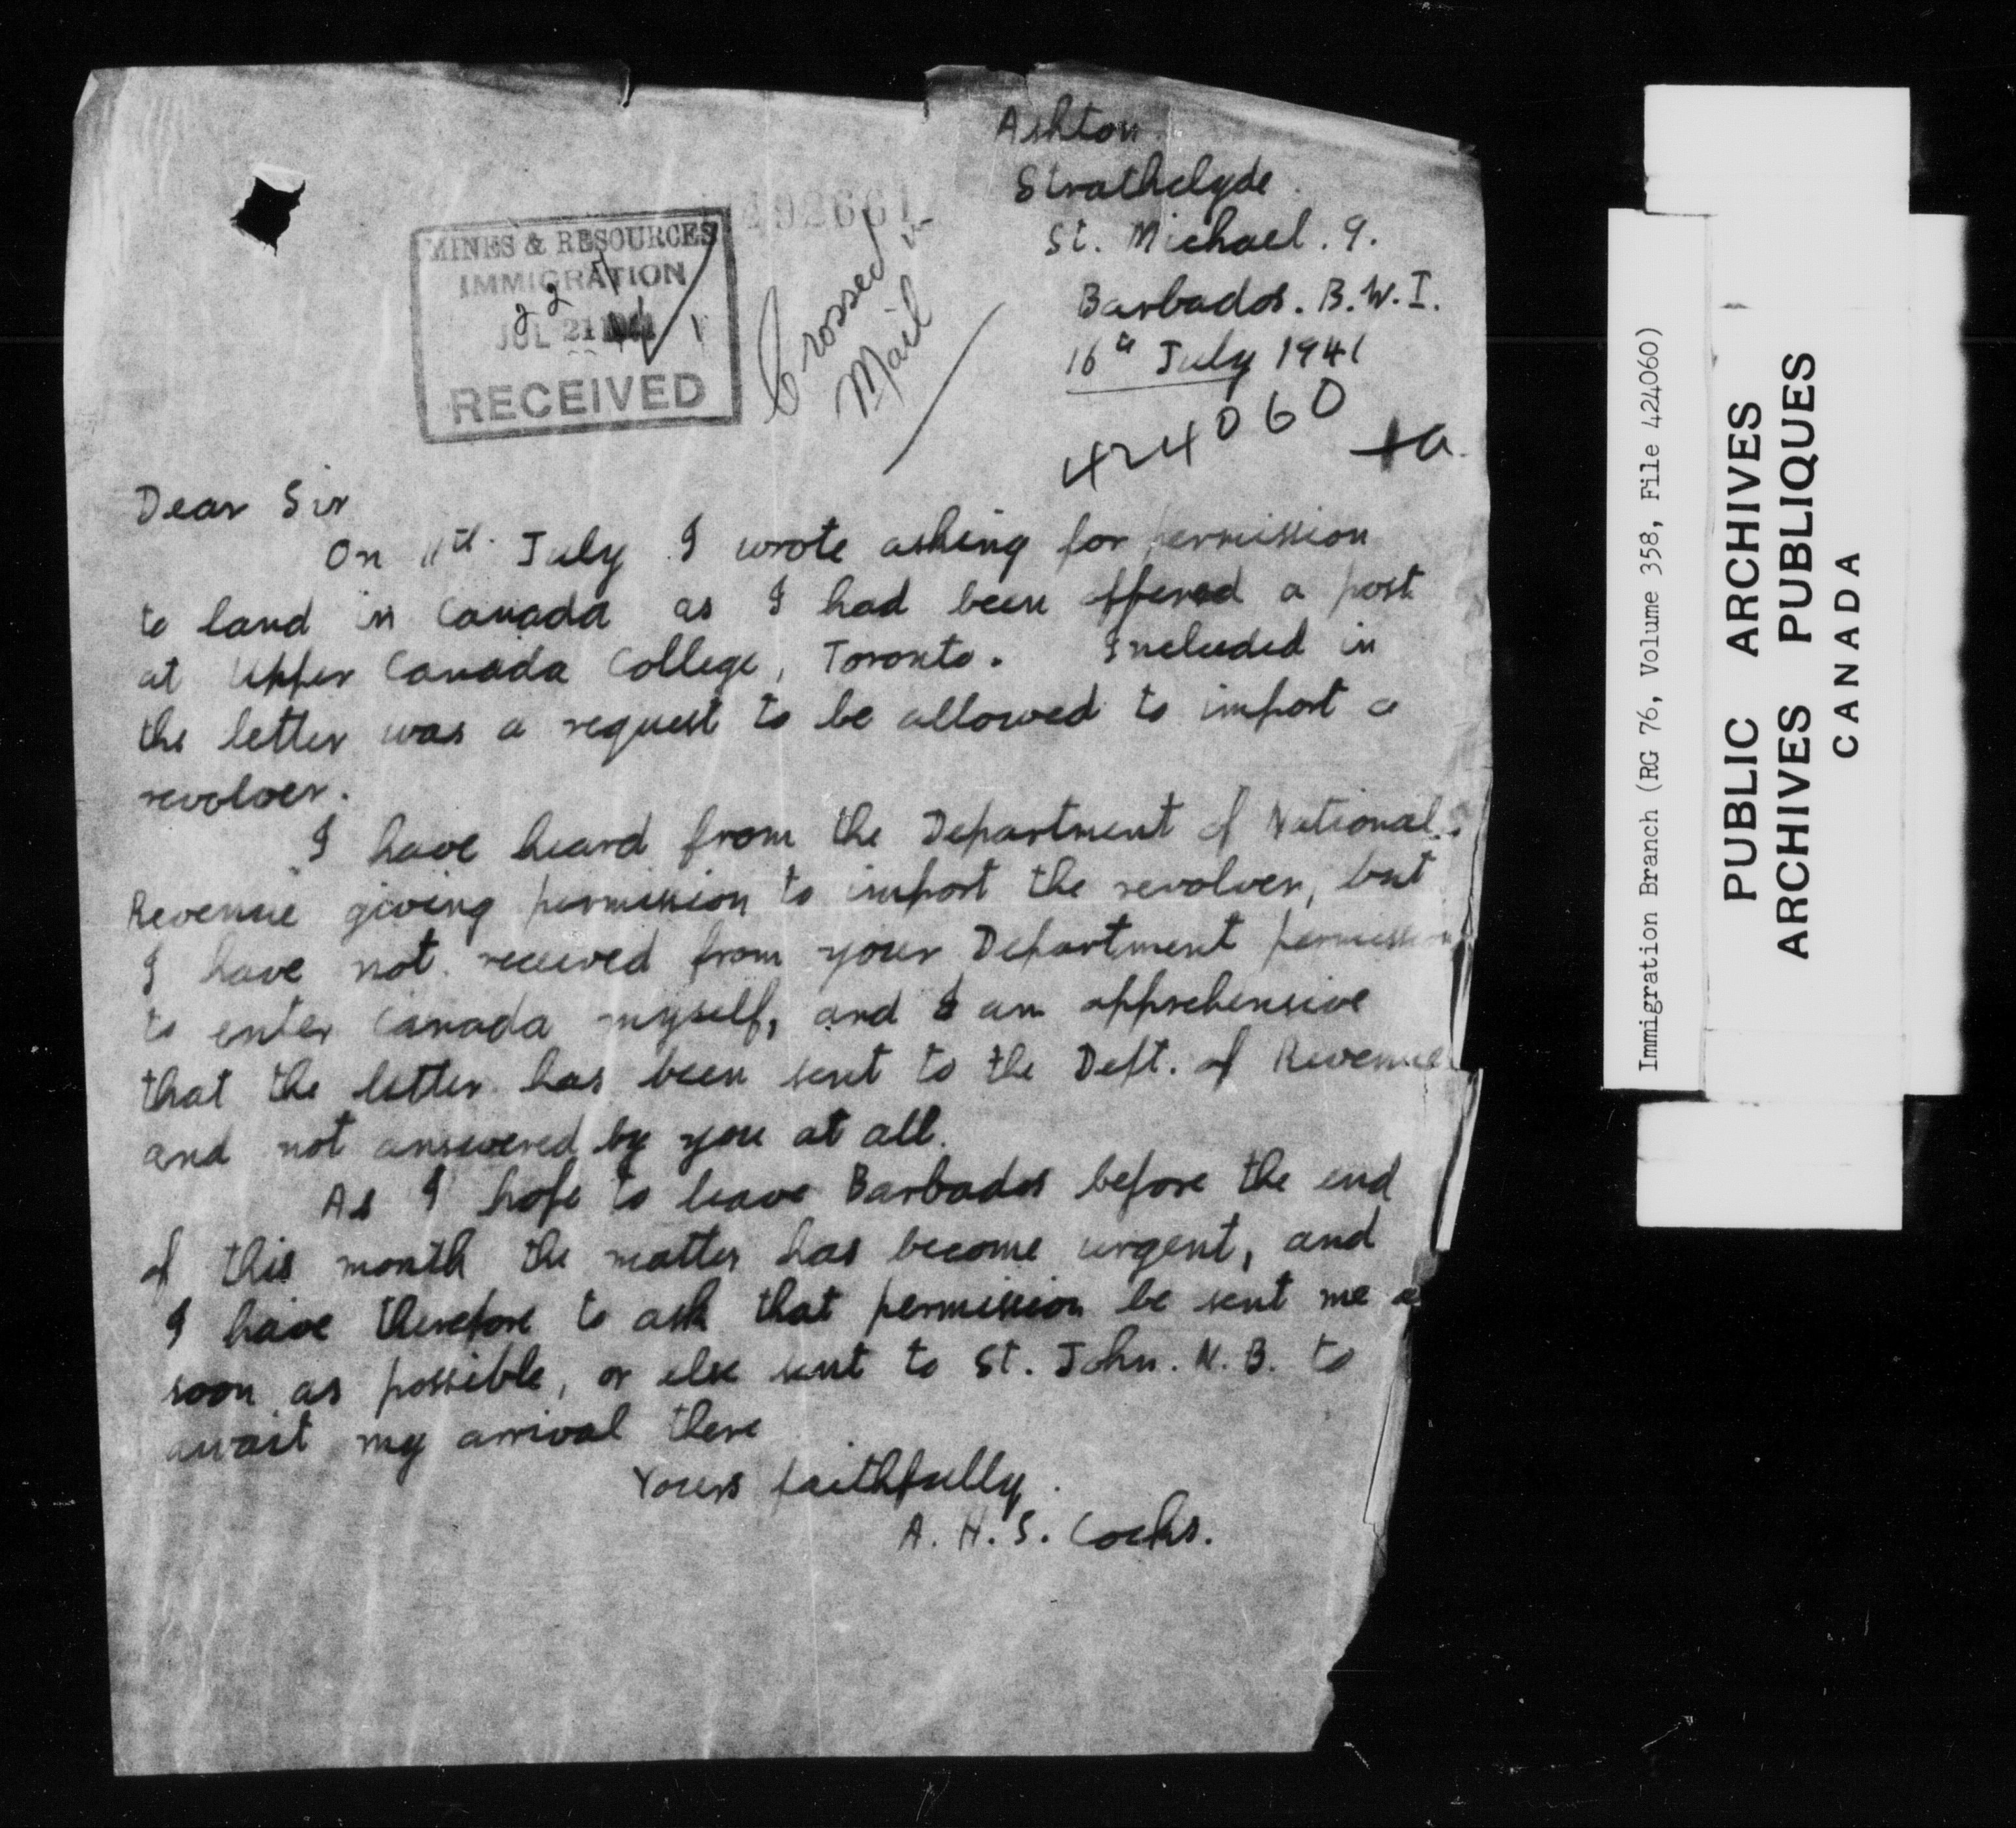 Ashton
Strathclyde.
St. Michael. 9.
Barbados. B.W.I.
16th July 1941
492661
MINES & RESOURCES
IMMIGRATION
22
JUL 21 1941
RECEIVED
Crossed in
Mail
424060
Dear Sir
On 11th. July I wrote asking for permission
to land in Canada as I had been offered a post
at Upper Canada College, Toronto. Included in
the letter was a request to be allowed to import a
revolver.
I have heard from the Department of National
Revenue giving permission to import the revolver, but
I have not received from your Department permission
to enter Canada myself, and I am apprehensive
that the letter has been sent to the Dept. of Revenue
and not answered by you at all.
As I hope to leave Barbados before the end
of this month the matter has become urgent, and
I have therefore to ask that permission be sent me as
soon as possible, or else sent to St. John. N.B. to
await my arrival there
Yours faithfully.
A. H. S. Cocks.
Immigration Branch (RG 76, Volume 358, File 424060)
PUBLIC ARCHIVES
ARCHIVES PUBLIQUES
CANADA